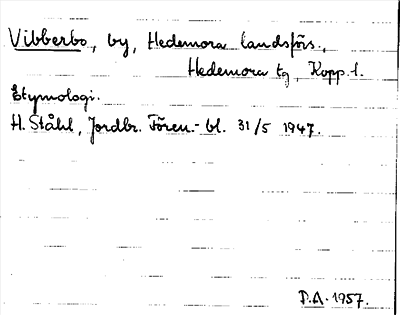 Vibberbo, by, Hedemora landsförs.,
Hedemora tg, Kopp. l.
Etymologi.
H. Ståhl, Jordbr. Fören.- bl. 31/5 1947.
D.A. 1957.